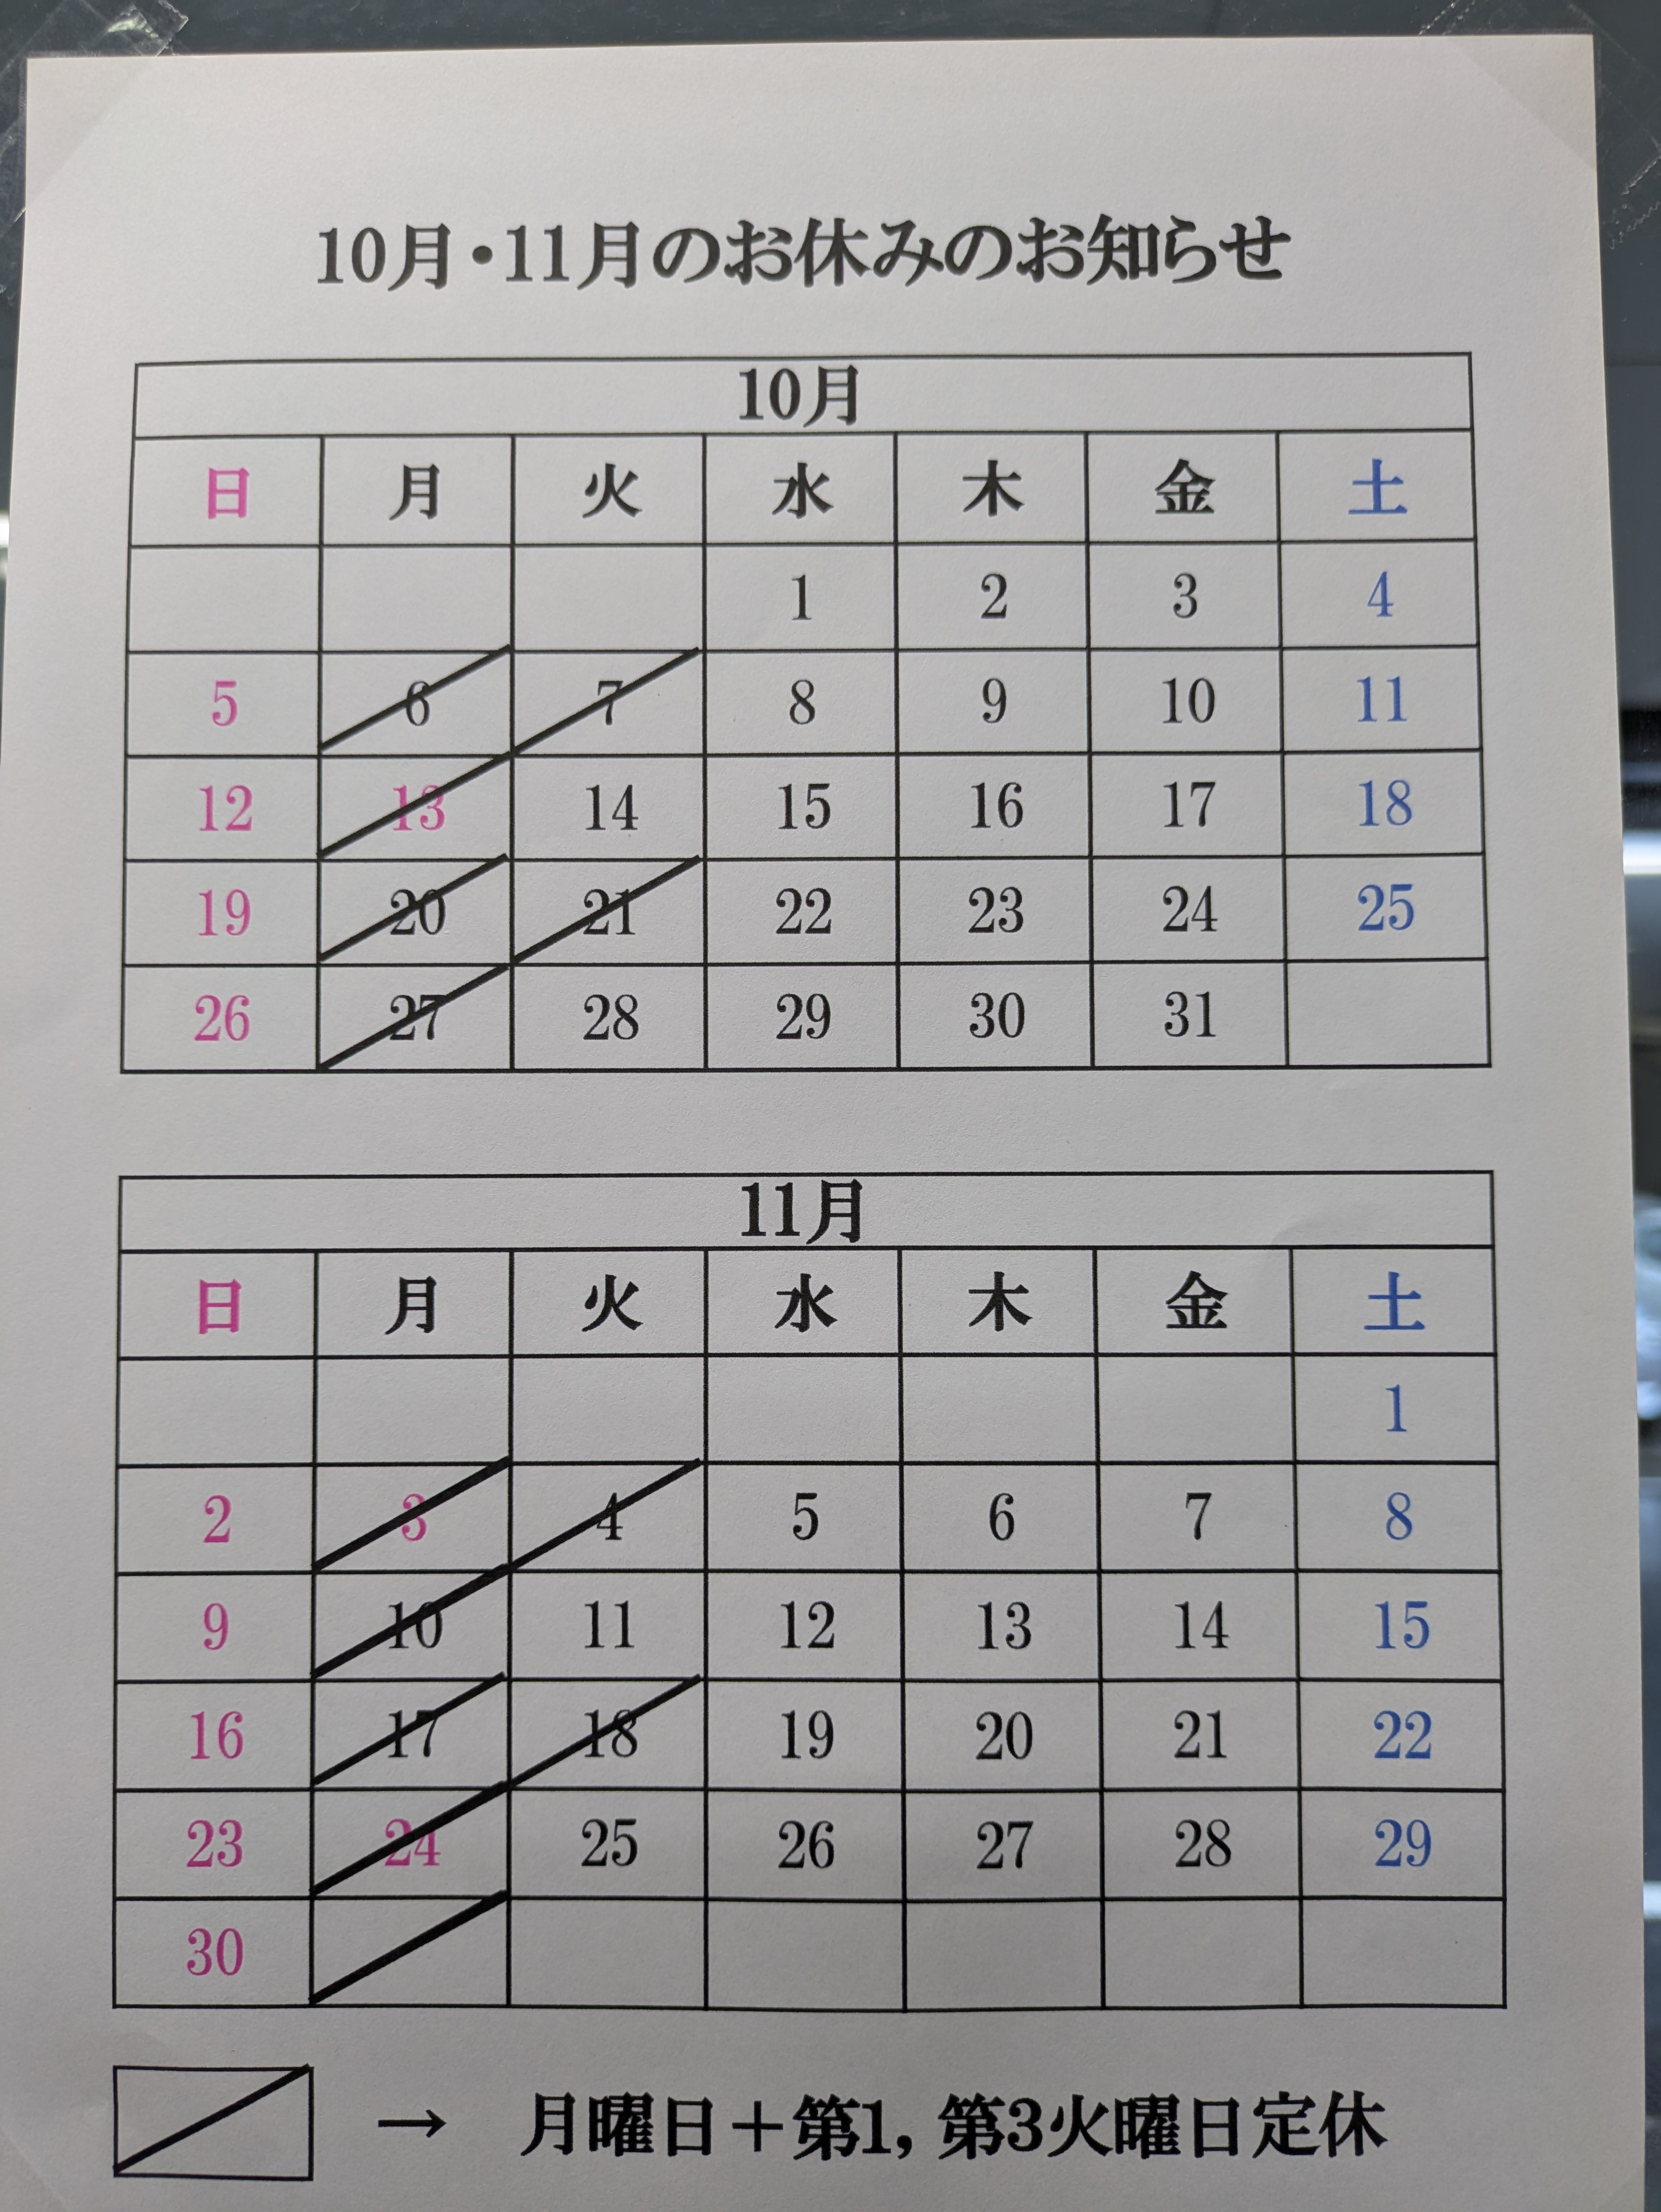 10月・11月のお休みのお知らせ
10月
日 月 火 水 木 金 土
1 2 3 4
5 6 7 8 9 10 11
12 13 14 15 16 17 18
19 20 21 22 23 24 25
26 27 28 29 30 31
11月
日 月 火 水 木 金 土
1
2 3 4 5 6 7 8
9 10 11 12 13 14 15
16 17 18 19 20 21 22
23 24 25 26 27 28 29
30
→ 月曜日＋第1, 第3火曜日定休